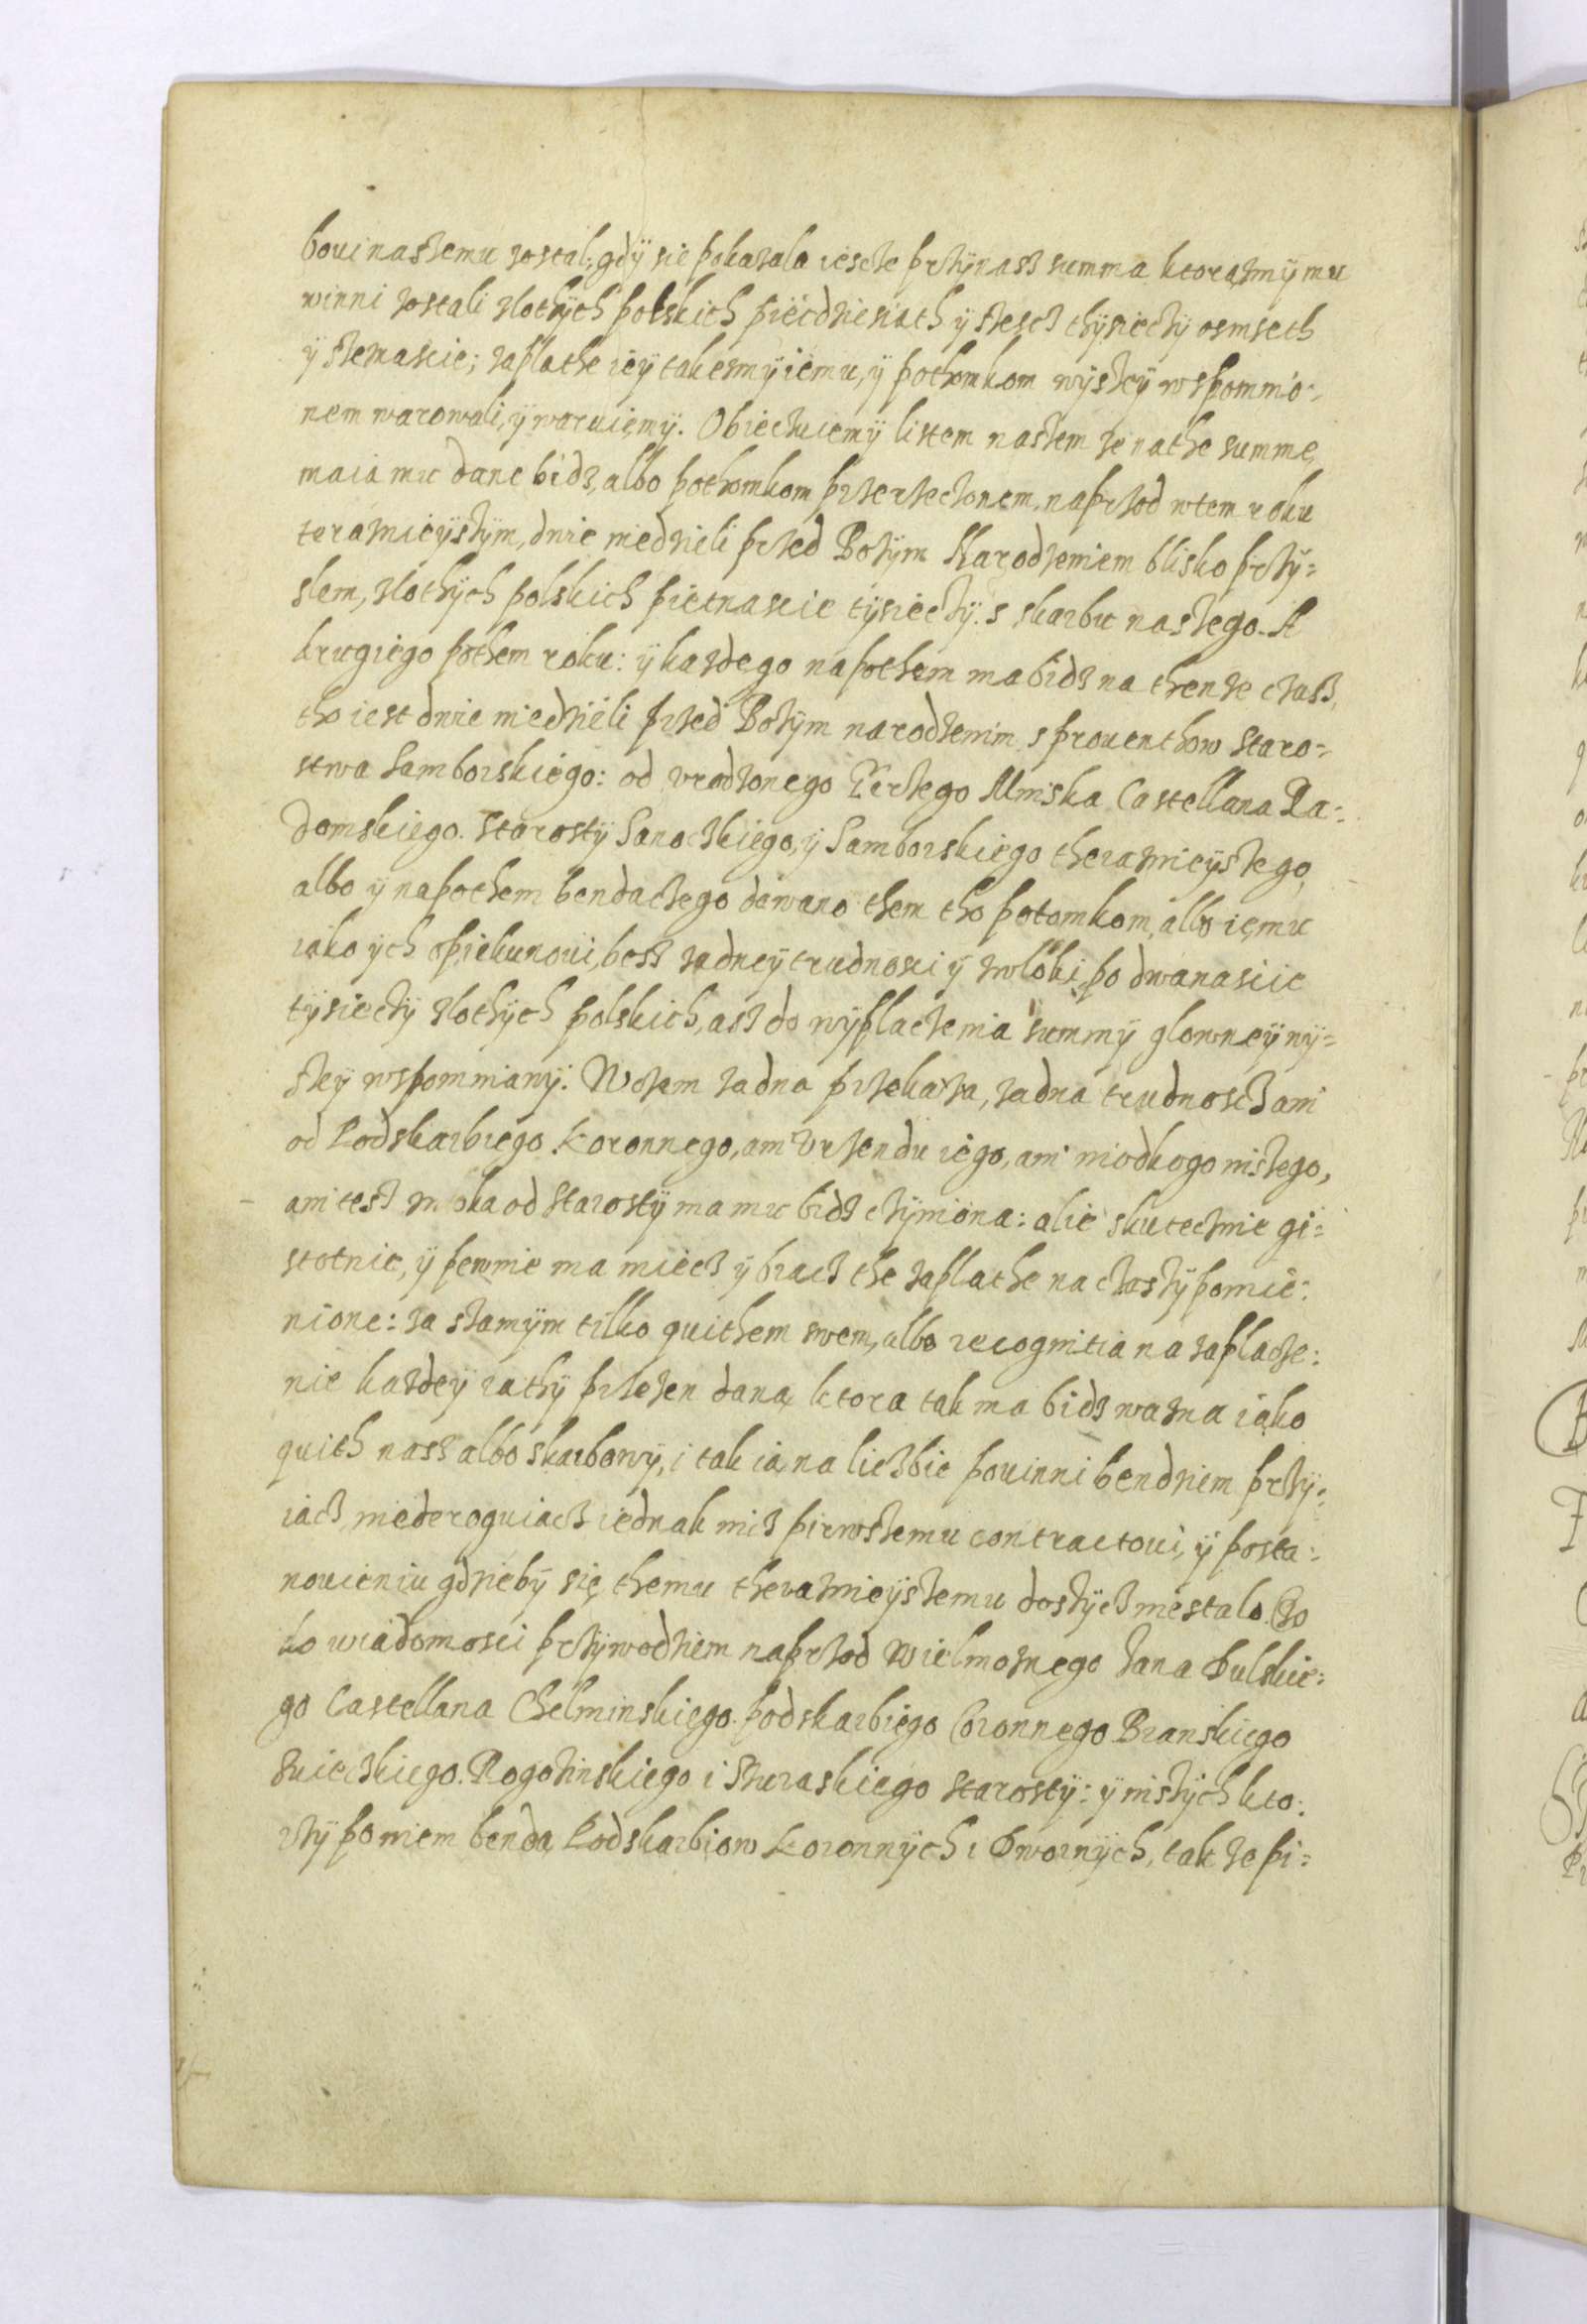 boui naszemu zostal, gdÿ sie pokazala iescze przÿ nasz summa ktorasmÿ mu
winni zostali zlothÿch polskich pieċdziesiąth ÿ szescz thÿsieczÿ osmseth
ÿ szesnascie; zaplathe ieÿ takesmÿ iemu, ÿ pothomkom wÿszeÿ wspommio-
nem warowali, ÿ waruięmÿ. Obieczuiemÿ listem naszem ze na the summe,
maia mu dane bidz, albo pothomkom przerzeczonem, naprzod w tem roku
teraznieÿszÿm, dnie niedzieli przed Bozÿm Narodzeniem blisko przÿ=
slem, zlothÿch polskich pietnascie tÿsieczÿ. s skarbu naszego. A
drugiego pothem roku: ÿ kazdego napothem ma bidz na thenze czasz,
tho iest dnie niedzieli przed Bozÿm narodzenim s prouenthow staro=
stwa Samborskiego: od vrodzonego Jerzego Mniska Castellana Ra=
domskiego. Starostÿ Sanoczkiego, ÿ Samborskiego theraznieÿszego,
albo ÿ napothem bendaczego dawano them tho potomkom, albo ięmu
iako ÿch opiekunoui, besz zadneÿ trudnosci ÿ zwloki, po dwanascie
tÿsieczÿ zlothÿch polskich, asz do wÿplaczenia summÿ glowneÿ wÿ=
szeÿ wspommianÿ. W czem zadna przekaza, zadna trudnoscz ani
od Podskarbiego Koronnego, ani Vrzendu iego, ani niodkogo niszego,
ani tesz zwloka od Starostÿ ma mu bidz czÿniona: alie skutecznie gi=
stotnie, ÿ pewnie ma miecz ÿ bracz the zaplathe na czaszÿ pomie=
nione: za szamÿm tilko quithem swem, albo recognitia na zaplacze=
nie kazdeÿ rathÿ przezen dana, ktora tak ma bidz wazna iako
quith nasz albo skarbowÿ, i tak ia na liczbie pouinni bendziem przÿ=
iacz, niederoguiacz iednak nicz pirwszemu contractoui, ÿ posta=
nouieniu gdziebÿ się themu theraznieÿszemu doszÿcz niestalo. Czo
do wiadomosci przÿwodziem naprzod Wielmoznego Jana Dulskie=
go Castellana Chelminskiego. podskarbiego Coronnego Branskiego
Swieczkiego. Rogozinskiego i Suraskiego starostÿ: ÿ niszÿch kto=
rzÿ po niem benda Podskarbiow Koronnÿch i Dwornÿch, tak ze pi=